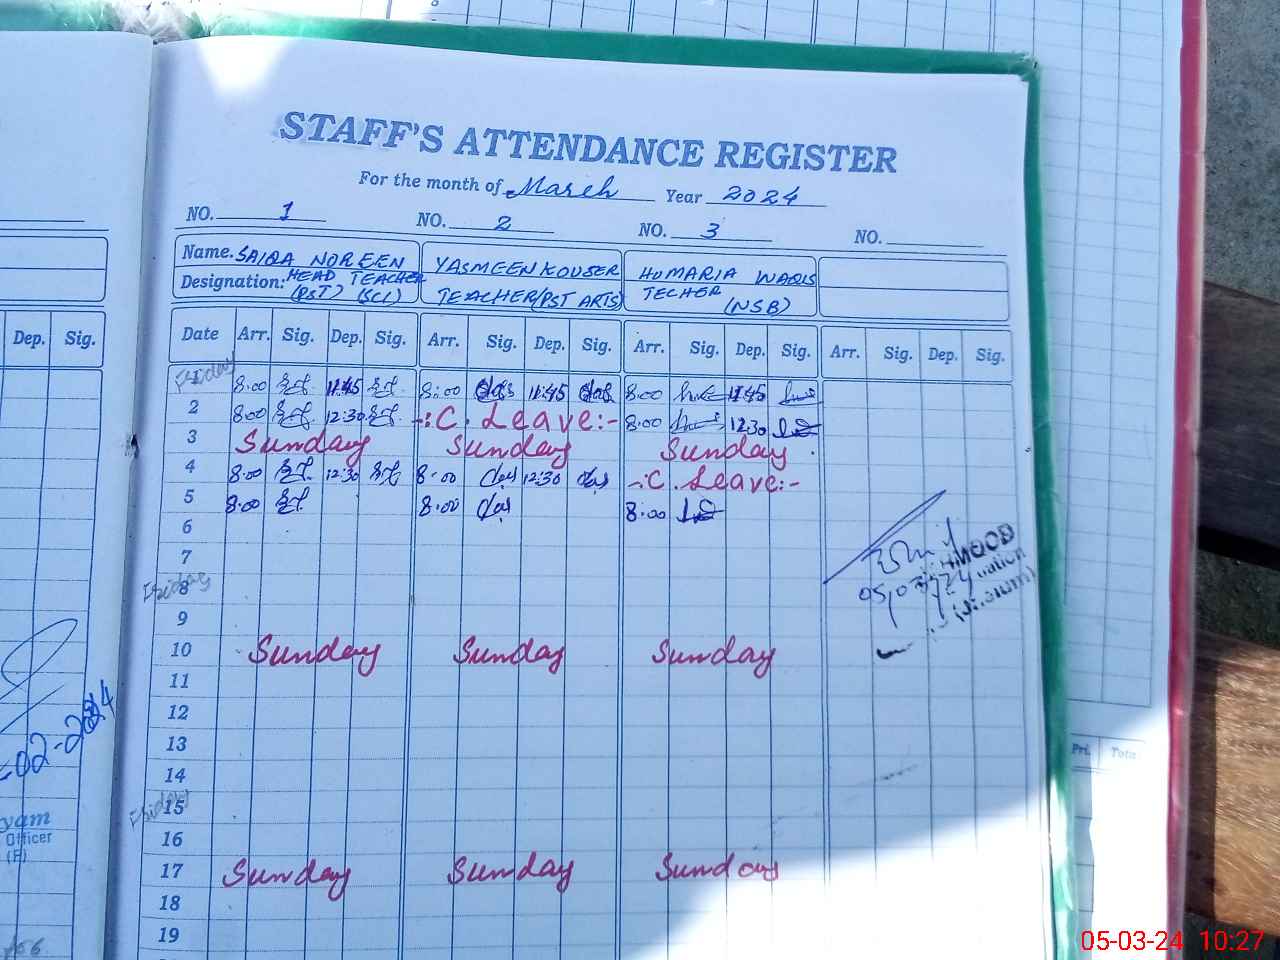 STAFF'S ATTENDANCE REGISTER
For the month of March Year 2024
NO. 1 NO. 2 NO. 3 NO.
Name. SAIQA NOREEN YASMEEN KOUSER HUMARIA WAQIS
Designation: HEAD TEACHER (PST) (SCI) TEACHER (PST ARTS) TECHER (NSB)
Dep. Sig. Date Arr. Sig. Dep. Sig. Arr. Sig. Dep. Sig. Arr. Sig. Dep. Sig. Arr. Sig. Dep. Sig.
Friday 1 8:00 11:45 8:00 11:45 8:00 11:45
2 8:00 12:30 -:C. Leave:- 8:00 12:30
3 Sunday Sunday Sunday
4 8:00 12:30 8:00 12:30 -:C. Leave:-
5 8:00 8:00 8:00
6
7
Friday 8
9
10 Sunday Sunday Sunday
11
12
13
14
Friday 15
16
17 Sunday Sunday Sunday
18
19
MOOD
-02-2024
yam
Officer
(F)
Pri. Tota
05-03-24 10:27